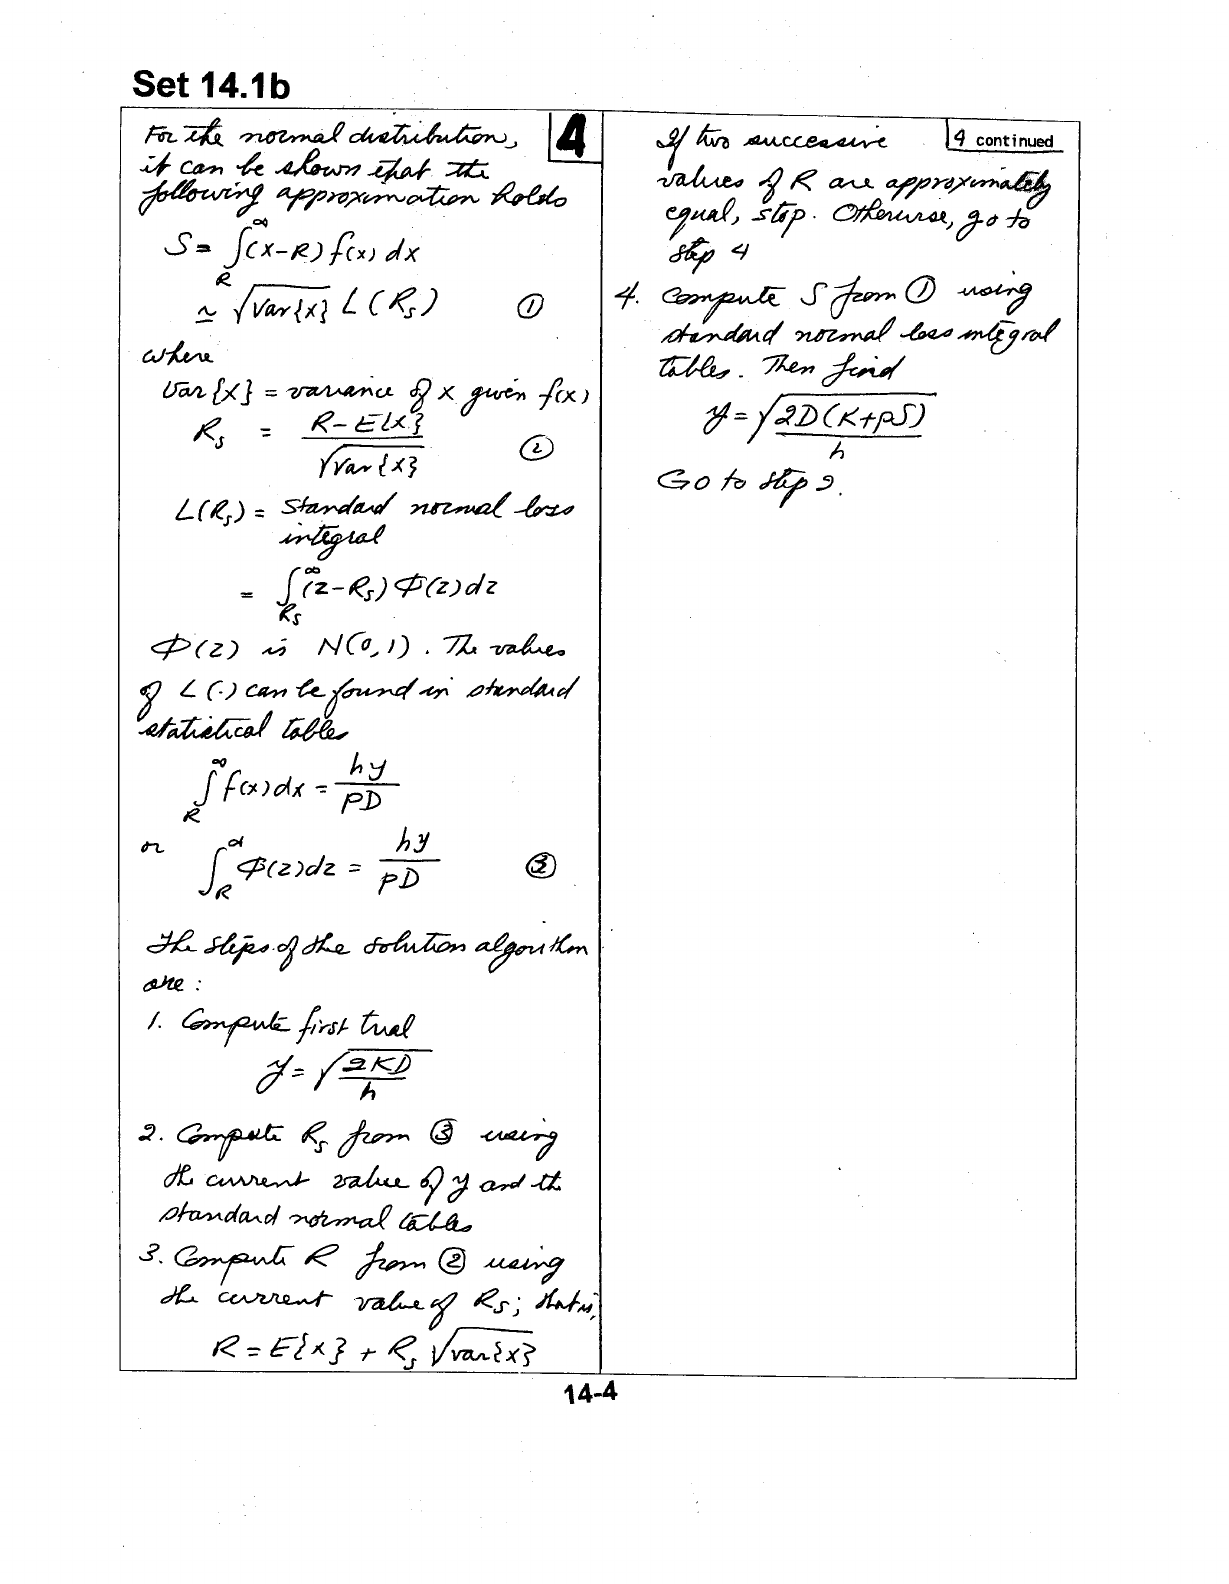 Set 14.1b
For the normal distribution,
4
it can be shown that the
following approximation holds
S = ∫_R^∞ (x-R) f(x) dx
≃ √Var{x} L(R_s) ①
where
Var{x} = variance of x given f(x)
R_s = (R - E{x}) / √Var{x} ②
L(R_s) = Standard normal loss
integral
= ∫_{R_s}^∞ (z-R_s) Φ(z) dz
Φ(z) is N(0,1). The values
of L(·) can be found in standard
statistical tables
∫_R^∞ f(x) dx = hy / pD
or ∫_R^∞ Φ(z) dz = hy / pD ③
The steps of the solution algorithm
are :
1. Compute first trial
y = √(2KD / h)
2. Compute R_s from ③ using
the current value of y and the
standard normal tables
3. Compute R from ② using
the current value of R_s; that is,
R = E{x} + R_s √var{x}
If two successive
4 continued
values of R are approximately
equal, stop. Otherwise, go to
step 4
4. Compute S from ① using
standard normal loss integral
tables. Then find
y = √(2D(K+pS) / h)
Go to step 2.
14-4